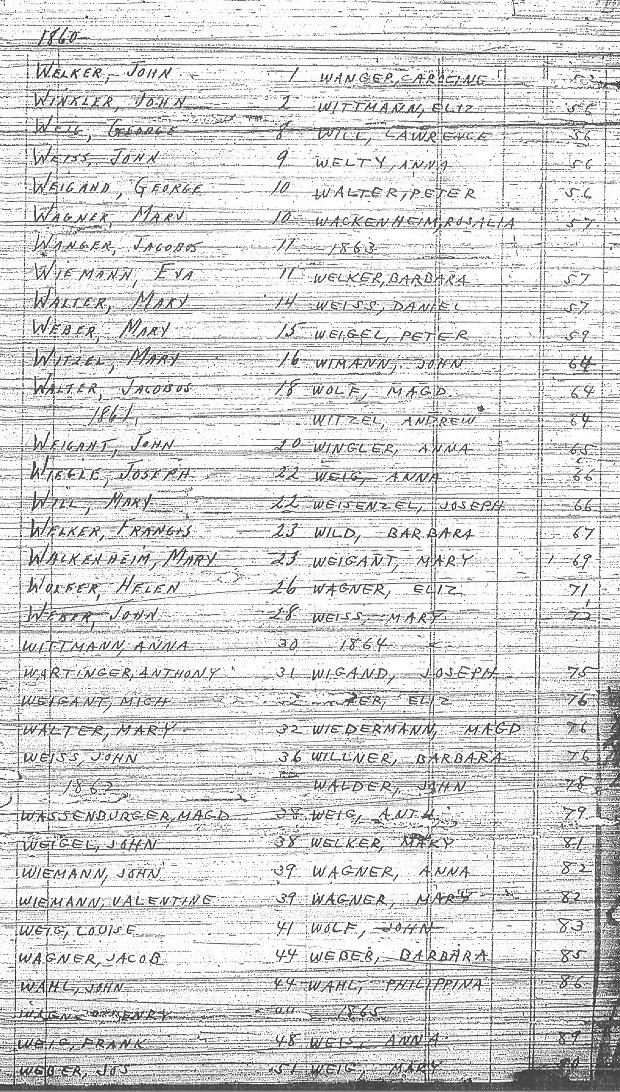 1860
WELKER, JOHN 1
WINKLER, JOHN 2
WEIG, GEORGE 8
WEISS, JOHN 9
WEIGAND, GEORGE 10
WAGNER, MARY 10
WANGER, JACOBOS 11
WIEMANN, EVA 11
WALTER, MARY 14
WEBER, MARY 15
WITZEL, MARY 16
WALTER, JACOBOS 18
1861
WEIGANT, JOHN 20
WIEGLE, JOSEPH 22
WILL, MARY 22
WELKER, FRANCIS 23
WALKENHEIM, MARY 23
WOLBER, HELEN 26
WEBER, JOHN 28
WITTMANN, ANNA 30
WARTINGER, ANTHONY 31
WEIGANT, MICH
WALTER, MARY 32
WEISS, JOHN 36
WASSENBURGER, MAGD 38
WEIGEL, JOHN 38
WIEMANN, JOHN 39
WIEMANN, VALENTINE 39
WEIG, LOUISE 41
WAGNER, JACOB 44
WAHL, JOHN 44
HENRY
WEIG, FRANK 48
WEBER, JOS 51
WANGER, 53
WITTMANN, ELIZ
WILL, LAWRENCE 56
WELTY, ANNA 56
WALTER, PETER 56
WACKENHEIM, ROSALIA 57
1863
WELKER, BARBARA 57
WEISS, DANIEL 57
WEIGEL, PETER 59
WIMANN, JOHN 64
WOLF, MAGD. 64
WITZEL, ANDREW 64
WINGLER, ANNA 65
WEIG, ANNA 66
WEISENZEL, JOSEPH 66
WILD, BARBARA 67
WEIGANT, MARY 69
WAGNER, ELIZ 71
WEISS, MARY 72
1864
WIGAND, JOSEPH 75
ELIZ 76
WIEDERMANN, MAGD 76
WILLNER, BARBARA 76
WALDER, JOHN 78
WEIG, ANTH. 79
WELKER, MARY 81
WAGNER, ANNA 82
WAGNER, MARY 82
WOLF, JOHN 83
WEBER, BARBARA 85
WAHL, PHILIPPINA 86
1865
WEIS, ANNA 89
WEIG, MARY